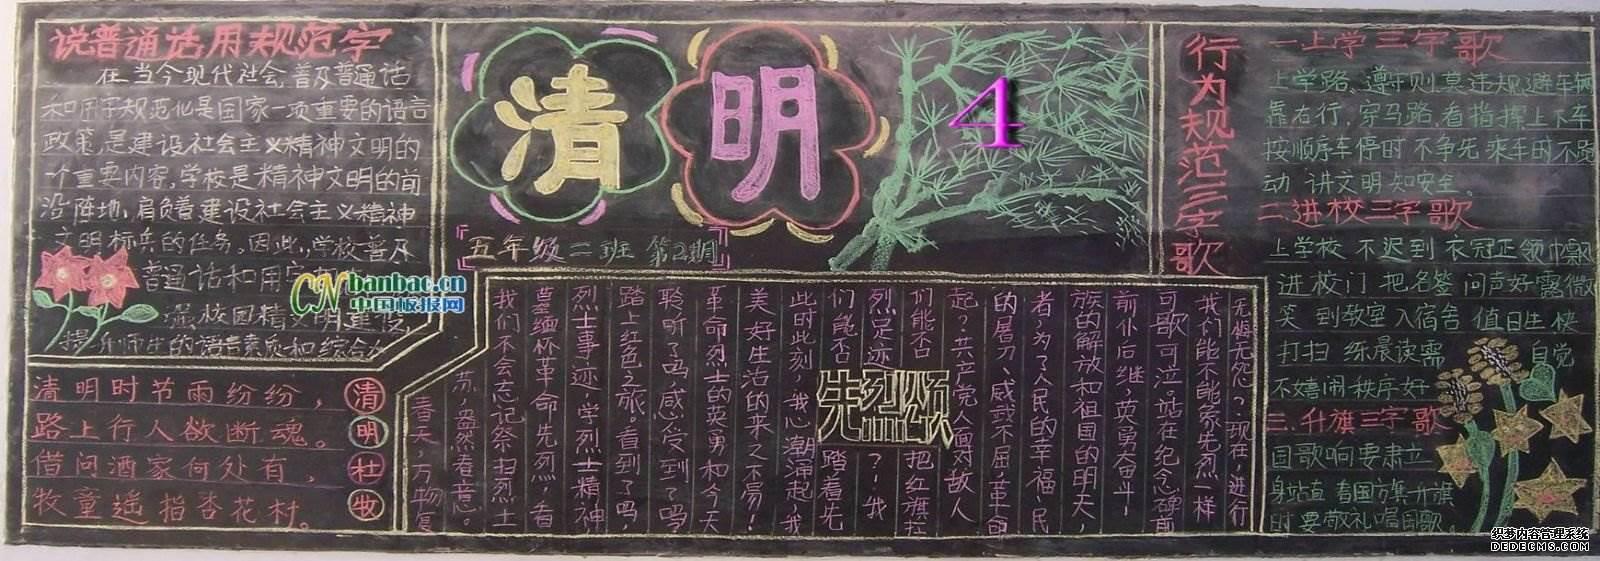 说普通话用规范字
在当今现代社会,普及普通话
和用字规范化是国家一项重要的语言
政策,是建设社会主义精神文明的
一个重要内容,学校是精神文明的前
沿阵地,肩负着建设社会主义精神
文明标兵的任务,因此,学校普及
普通话和用字
强校园精文明建设,
提升师生的语言素质和综合
CN banbao.cn
中国板报网
清明时节雨纷纷,
路上行人欲断魂。
借问酒家何处有,
牧童遥指杏花村。
清明杜牧
清明
4
五年级二班 第2期
先烈颂
春天,万物复
苏,盎然春意。
我们不会忘记祭扫烈士
墓缅怀革命先烈,看
烈士事迹,学烈士精神
踏上红色之旅。看到了吗,
聆听了吗,感受到了吗
革命烈士的英勇和今天
美好生活的来之不易!
此时此刻,我心潮涌起,我
们能否踏着先
烈足迹?我
们能否把红旗扛
起?共产党人面对敌人
的屠刀、威武不屈革命
者,为了人民的幸福,民
族的解放和祖国的明天,
前仆后继,英勇奋斗
可歌可泣。站在纪念碑前
我们能不能象先烈一样
无悔无怨?现在,进行
行为规范三字歌
一上学三字歌
上学路、遵守则莫违规避车辆
靠右行,穿马路,看指挥上下车
按顺序车停时 不争先 乘车时不跑
动 讲文明 知安全。
二、进校三字歌
上学校 不迟到 衣冠正领巾飘
进校门 把名签 问声好露微
笑 到教室 入宿舍 值日生 快
打扫 练晨读需 自觉
不嬉闹秩序好
三、升旗三字歌
国歌响要肃立
身站直 看国旗升旗
时要敬礼唱国歌。
织梦内容管理系统
DEDECMS.COM